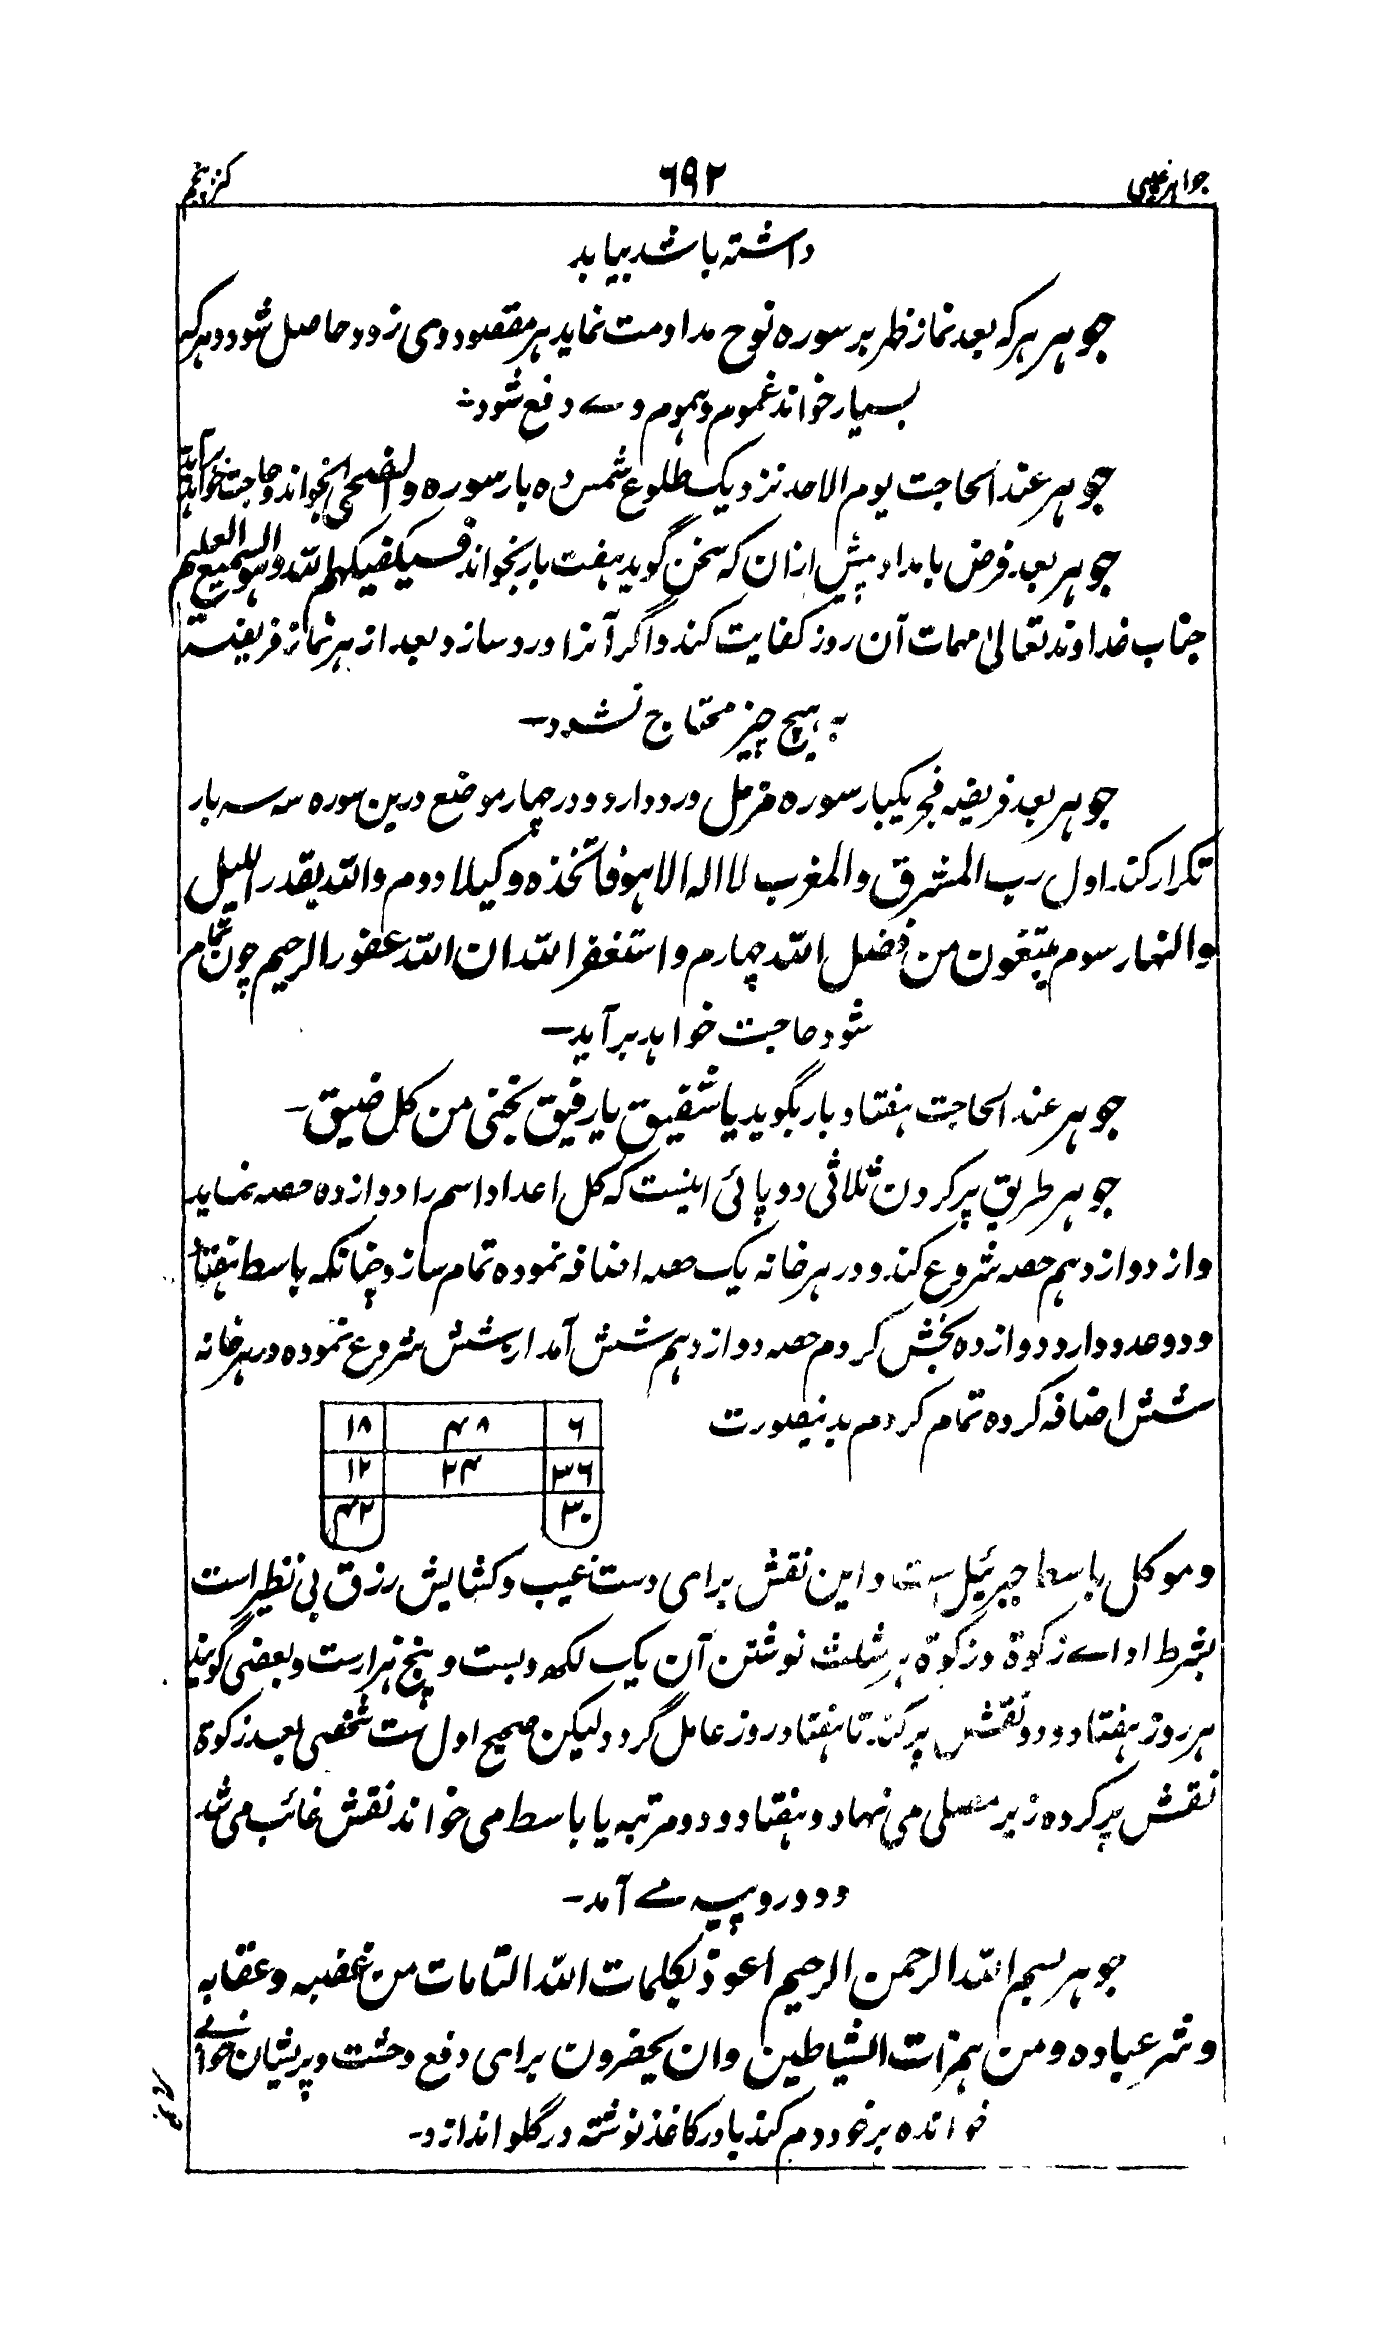 جواهر غیبی ۶۹۲ کنز پنجم
داشته باشد بیابد
جوهر هر که بعد نماز ظهر بر سوره نوح مداومت نماید هر مقصود وی زود حاصل شود و هر که
بسیار خواند غموم و هموم وے دفع شود
جوهر عند الحاجت یوم الاحد نزدیک طلوع شمس ده بار سوره والضحی بخواند و حاجت خواهد برآید
جوهر بعد فرض بامداد پیش ازان که سخن گوید هفت بار بخواند فسیکفیکهم الله وهو السمیع العلیم
جناب خداوند تعالیٰ مهمات آن روز کفایت کند و اگر آنرا ورد سازد بعد از هر نماز فریضه
به هیچ چیز محتاج نشود-
جوهر بعد فریضه فجر یکبار سوره مزمل ورد دارد و در چهار موضع درین سوره سه سه بار
تکرار کند اول رب المشرق والمغرب لا اله الا هو فاتخذه وکیلا دوم والله یقدر اللیل
والنهار سوم یبتغون من فضل الله چهارم واستغفر الله ان الله غفور الرحیم چون تمام
شود حاجت خواهد برآید-
جوهر عند الحاجت هفتاد بار بگوید یا شفیق یا رفیق نجنی من کل ضیق-
جوهر طریق پر کردن ثلاثی دو پائی اینست که کل اعداد اسم را دوازده حصه نماید
و از دوازدهم حصه شروع کند و در هر خانه یک حصه اضافه نموده تمام سازد چنانکه باسط هفتاد
و دو عدد دارد دوازده بخش کردم حصه دوازدهم شش آمد از شش شروع نموده در هر خانه
شش اضافه کرده تمام کردم بدینصورت
۶ ۴۸ ۱۸
۳۶ ۲۴ ۱۲
۳۰ ۴۲
و موکل باسط جبرئیل است و این نقش برای دست غیب و کشایش رزق بی نظیر است
بشرط اداے زکوة و زکوة هر مثلث نوشتن آن یک لکهه و بست و پنج هزارست و بعضی گویند
هر روز هفتاد و دو نقش پر کند تا هفتاد روز عامل گردد لیکن صحیح اول ست شخصی بعد زکوة
نقش پر کرده زیر مصلی می نهاد و هفتاد و دو مرتبه یا باسط می خواند نقش غائب می شد
و دو روپیه مے آمد-
جوهر بسم الله الرحمن الرحیم اعوذ بکلمات الله التامات من غضبه وعقابه
وشر عباده ومن همزات الشیاطین وان یحضرون برای دفع وحشت و پریشان خوابی
خوانده بر خود دم کند یا در کاغذ نوشته در گلو اندازد-